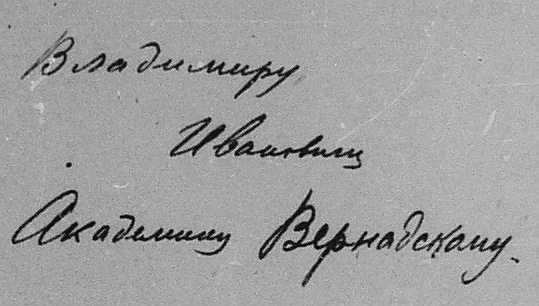 Владимиру
Ивановичу
Академику Вернадскому.